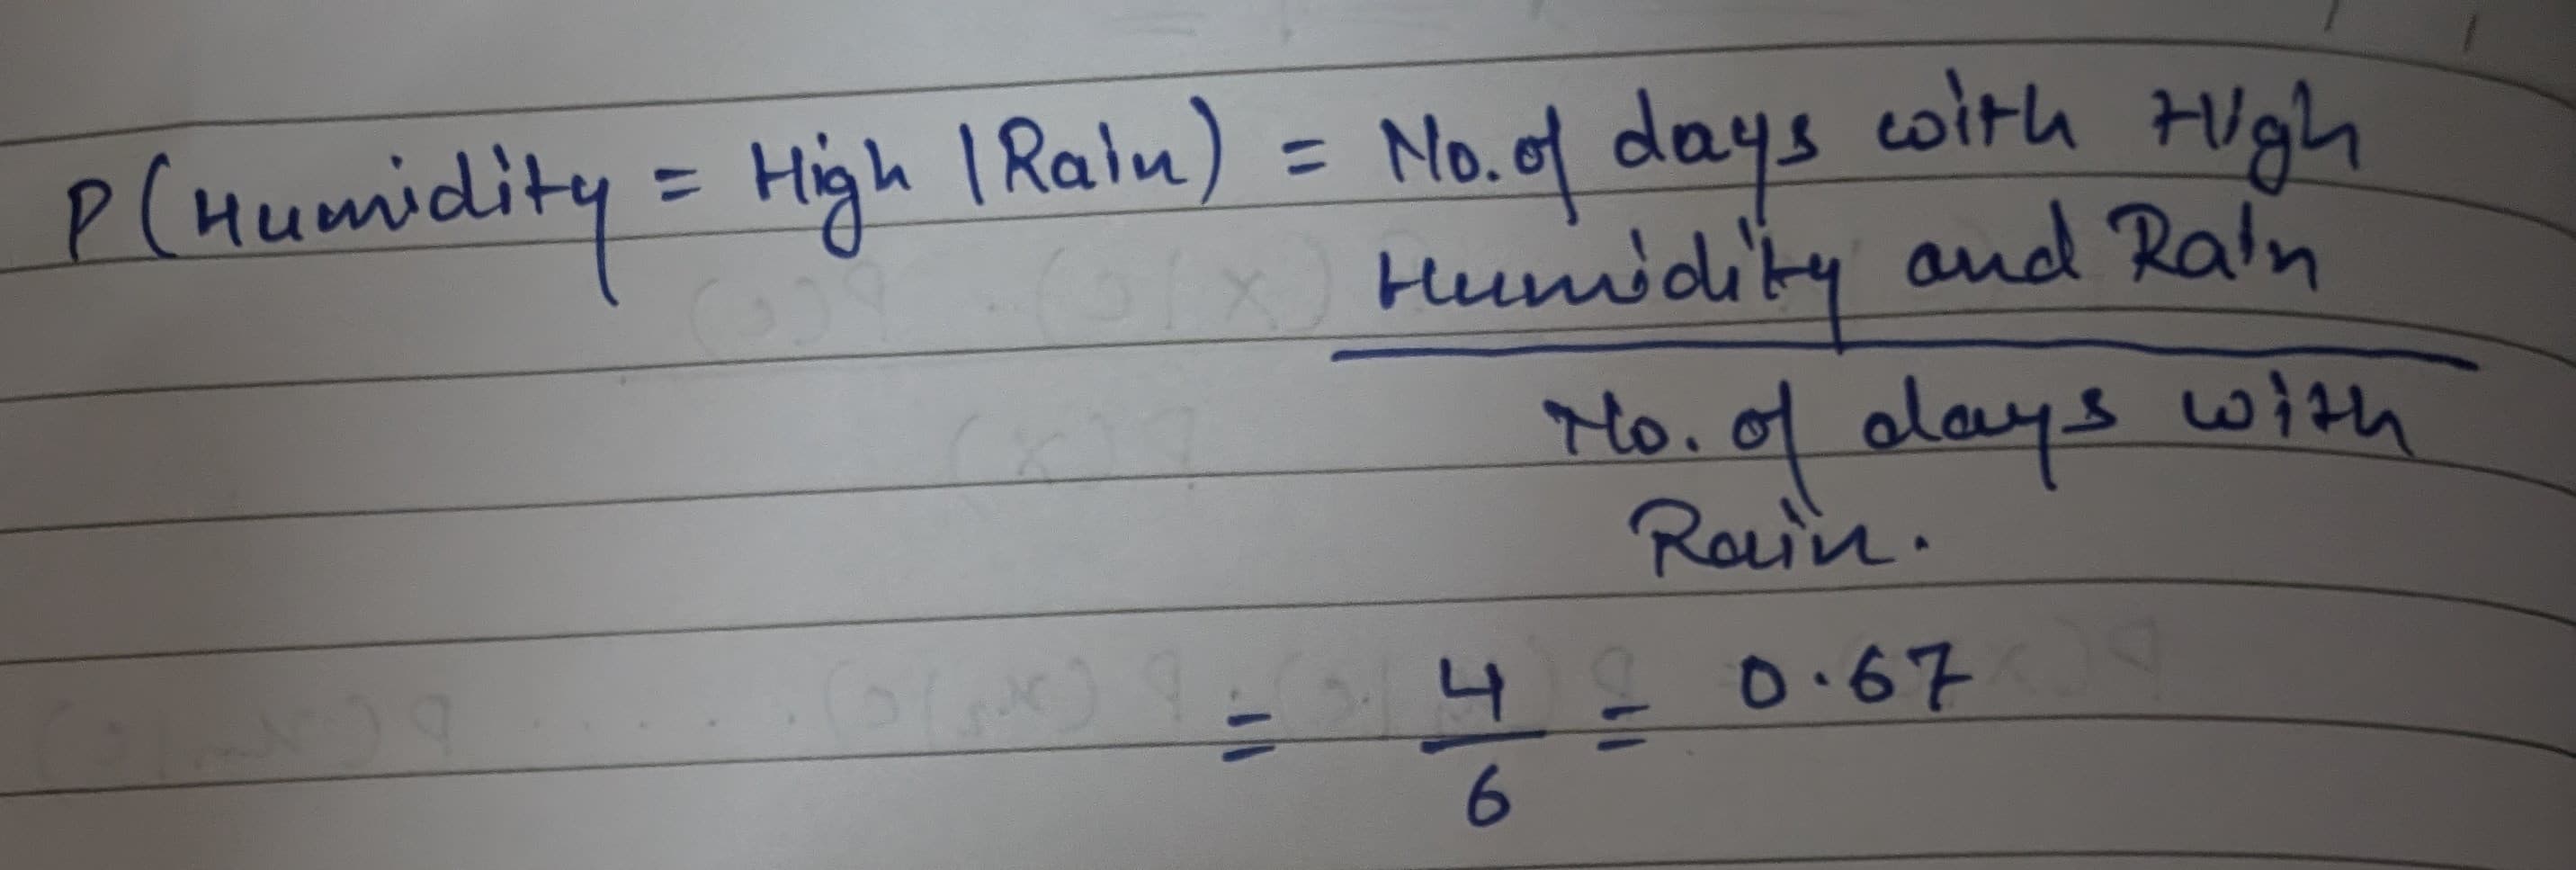 P(Humidity = High | Rain) = No. of days with High
Humidity and Rain
No. of days with
Rain.
= 4/6 = 0.67